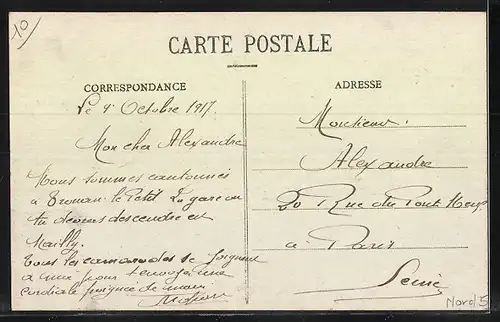 10
CARTE POSTALE
CORRESPONDANCE
Le 4 Octobre 1917
Mon cher Alexandre
Nous sommes cantonnés
à Troman le Petit La gare ou
tu devras descendre est
Mailly.
Tous les camarades se joignent
à moi pour t'envoyer une
cordiale poignée de main
ADRESSE
Monsieur.
Alexandre
20 Rue du Pont Neuf
à Paris
Seine
Nord 5